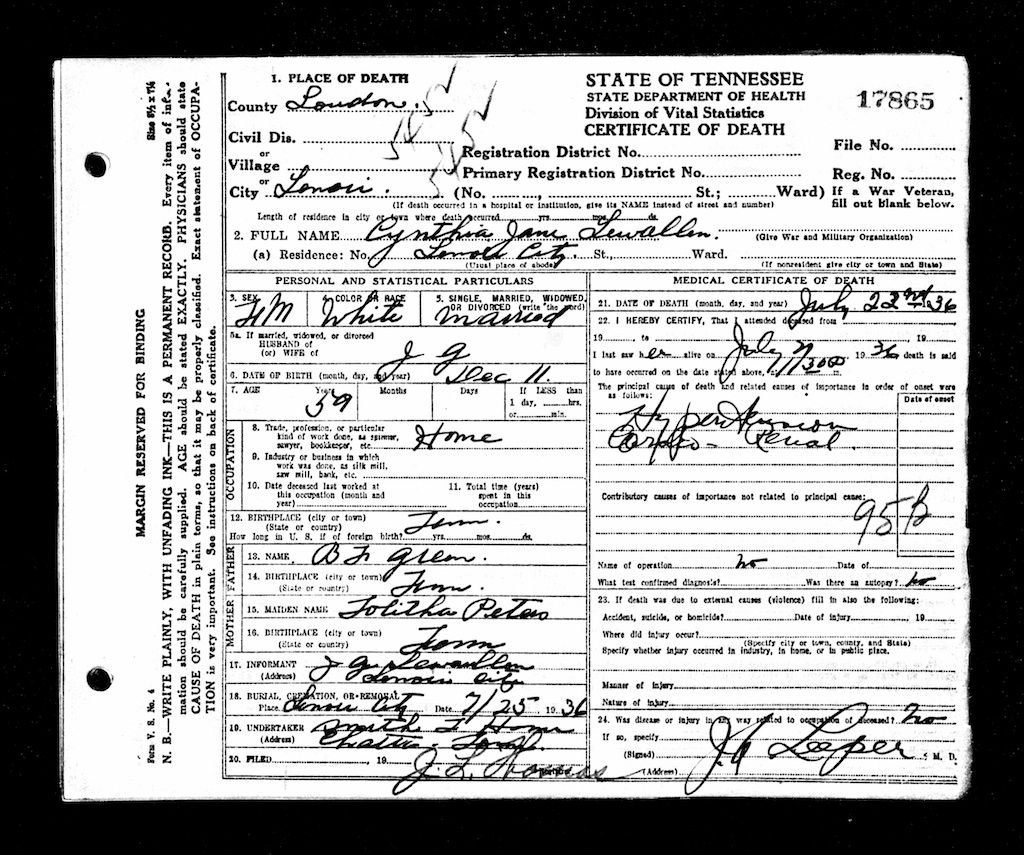 MARGIN RESERVED FOR BINDING
Form V. S. No. 4
Size 8½ x 7¼
N. B.—WRITE PLAINLY, WITH UNFADING INK—THIS IS A PERMANENT RECORD. Every item of infor-
mation should be carefully supplied. AGE should be stated EXACTLY. PHYSICIANS should state
CAUSE OF DEATH in plain terms, so that it may be properly classified. Exact statement of OCCUPA-
TION is very important. See instructions on back of certificate.
1. PLACE OF DEATH
County Loudon.
Civil Dis.
or
Village
or
City Lenoir. (No. St.; Ward)
(If death occurred in a hospital or institution, give its NAME instead of street and number)
STATE OF TENNESSEE
STATE DEPARTMENT OF HEALTH
Division of Vital Statistics
CERTIFICATE OF DEATH
Registration District No.
Primary Registration District No.
17865
File No.
Reg. No.
If a War Veteran,
fill out blank below.
Length of residence in city or town where death occurred yrs. mos. ds.
2. FULL NAME Cynthia Jane Lewallen.
(Give War and Military Organization)
(a) Residence: No. Lenoir City. St., Ward.
(Usual place of abode)
(If nonresident give city or town and State)
PERSONAL AND STATISTICAL PARTICULARS
3. SEX
4. COLOR OR RACE White
5. SINGLE, MARRIED, WIDOWED, OR DIVORCED (write the word) Married
5a. If married, widowed, or divorced
HUSBAND of
(or) WIFE of J G
6. DATE OF BIRTH (month, day, and year) Dec 11.
7. AGE Years Months Days If LESS than
1 day, hrs.
or min.
59
OCCUPATION
8. Trade, profession, or particular
kind of work done, as spinner,
sawyer, bookkeeper, etc. Home
9. Industry or business in which
work was done, as silk mill,
saw mill, bank, etc.
10. Date deceased last worked at
this occupation (month and
year)
11. Total time (years)
spent in this
occupation
12. BIRTHPLACE (city or town)
(State or country) Tenn.
How long in U. S. if of foreign birth? yrs. mos. ds.
FATHER
13. NAME B F Green.
14. BIRTHPLACE (city or town)
(State or country) Tenn.
MOTHER
15. MAIDEN NAME Tolitha Peters
16. BIRTHPLACE (city or town)
(State or country) Tenn
17. INFORMANT J G Lewallen
(Address) Lenoir City
18. BURIAL, CREMATION, OR REMOVAL
Place Lenoir City Date 7/25 1936
19. UNDERTAKER Smith F Home
(Address) Chatta. Tenn.
20. FILED 19
J. L.
MEDICAL CERTIFICATE OF DEATH
21. DATE OF DEATH (month, day, and year) July 22nd 36
22. I HEREBY CERTIFY, That I attended deceased from
19 to 19
I last saw her alive on July 1936 death is said
to have occurred on the date stated above, at m.
The principal cause of death and related causes of importance in order of onset were
as follows:
Date of onset
Hypertension
Cardio-Renal
Contributory causes of importance not related to principal cause:
95 B
Name of operation no Date of
What test confirmed diagnosis? Was there an autopsy? no
23. If death was due to external causes (violence) fill in also the following:
Accident, suicide, or homicide? Date of injury 19
Where did injury occur?
(Specify city or town, county, and State)
Specify whether injury occurred in industry, in home, or in public place.
Manner of injury
Nature of injury
24. Was disease or injury in any way related to occupation of deceased? no
If so, specify
(Signed) Leeper M. D.
(Address)